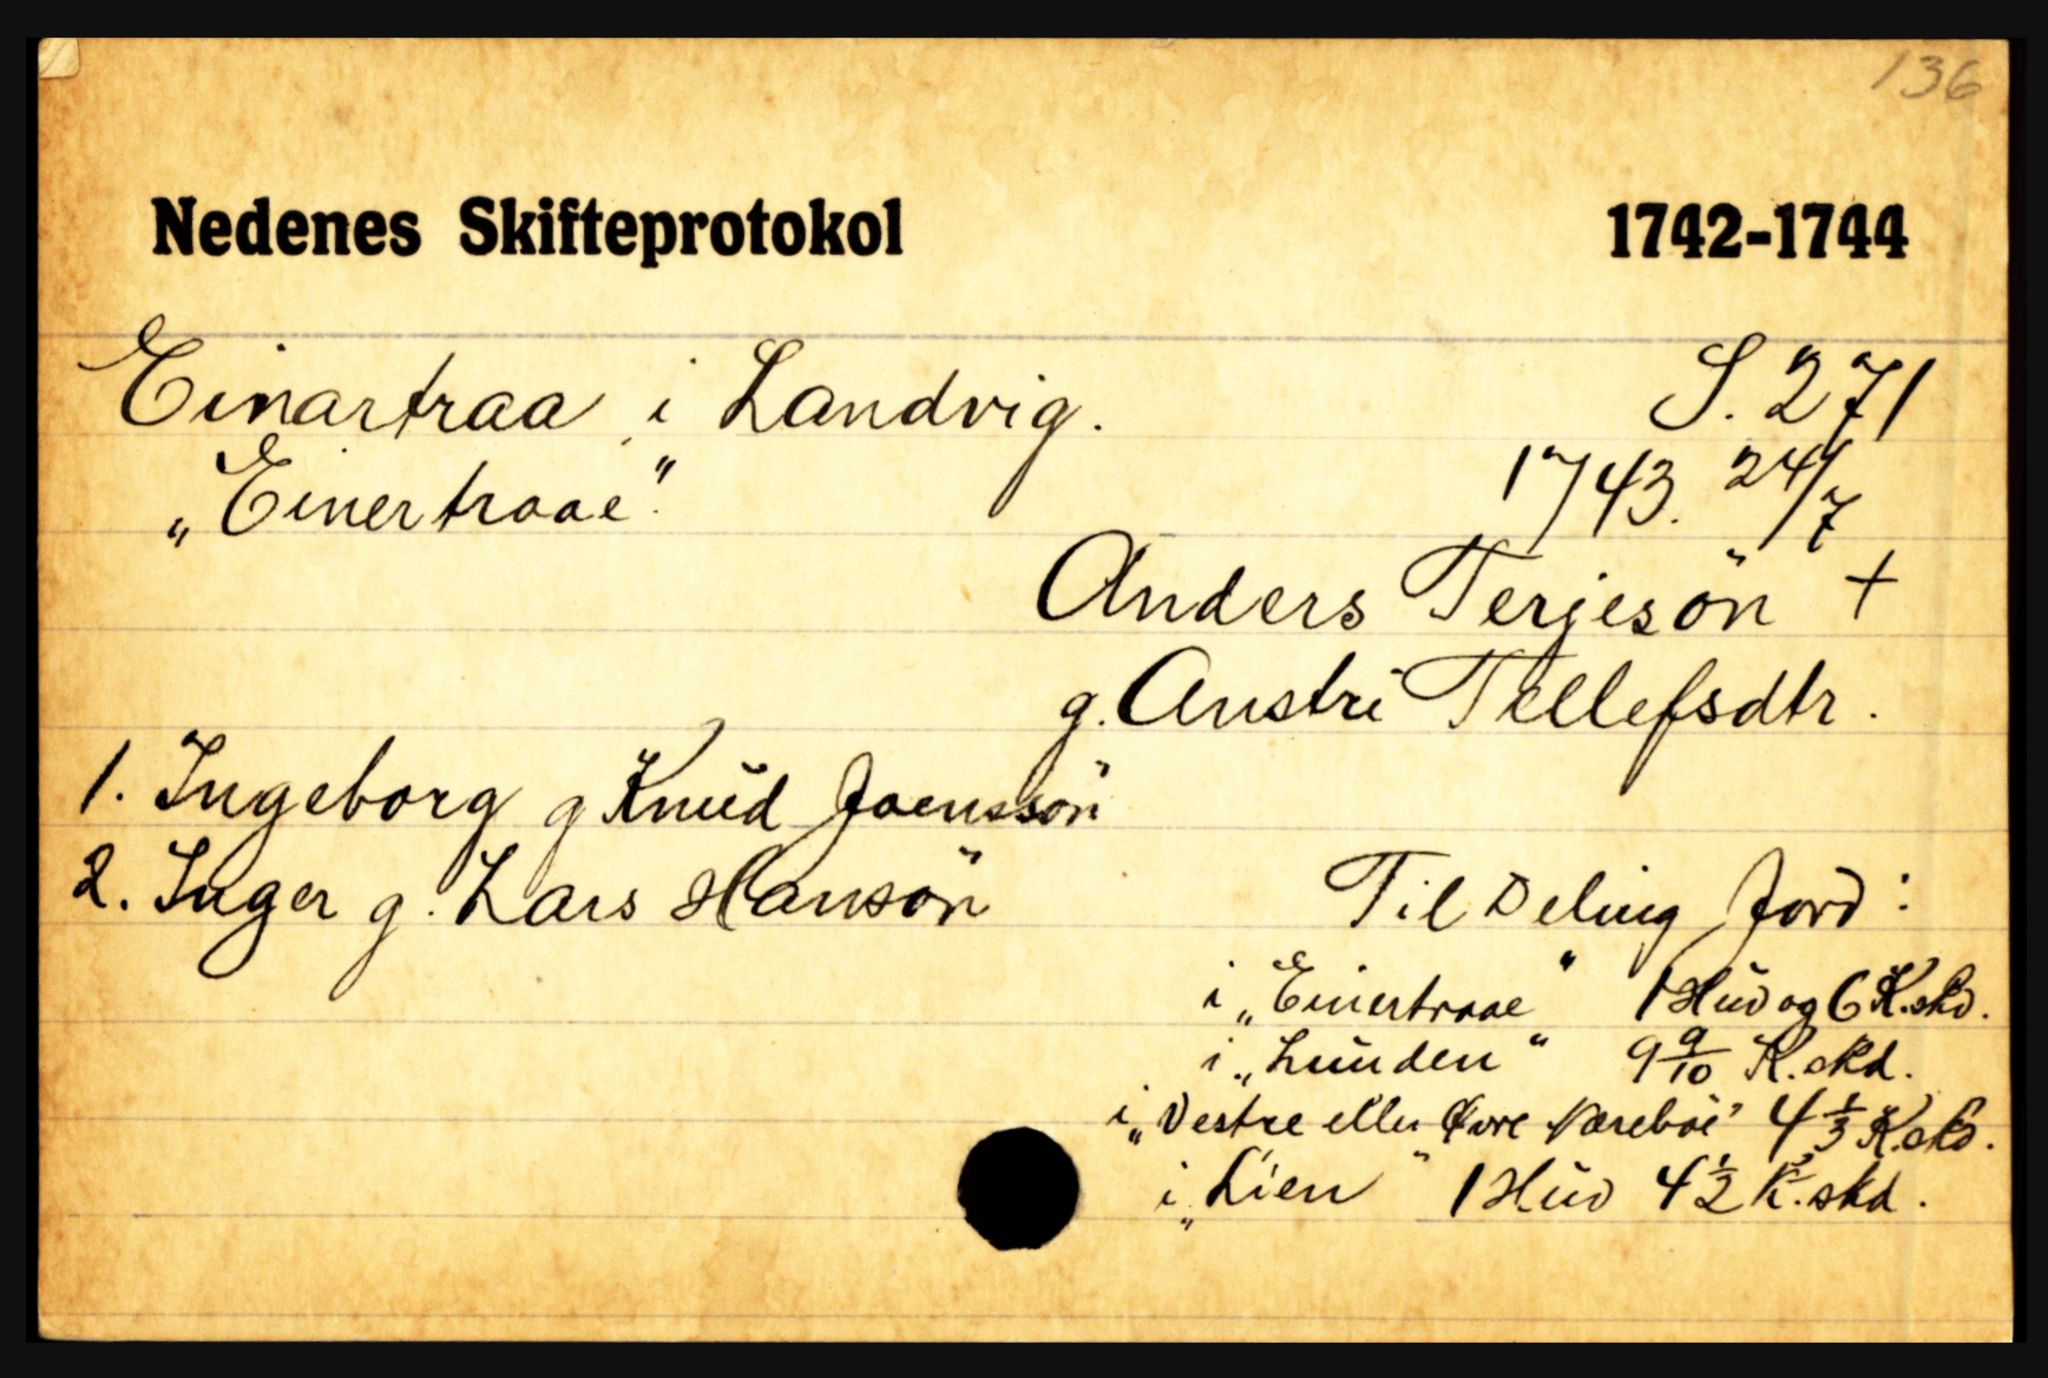 136
Nedenes Skifteprotokol 1742-1744
Einartraa i Landvig. S. 271
„Einertraae". 1743. 24/7
Anders Terjesön +
g. Anstri Tellefsdtr.
1. Ingeborg g Knŭd Joenssön
2. Inger g. Lars Hansön
Til Deling Jord:
i „Einertraae" 1 Hŭd og 6 K.skd.
i „Lŭnden" 9 9/10 K.skd.
i „Vestre eller Øvre 4 1/3 K.skd.
i „Lien" 1 Hŭd 4 1/2 K.skd.